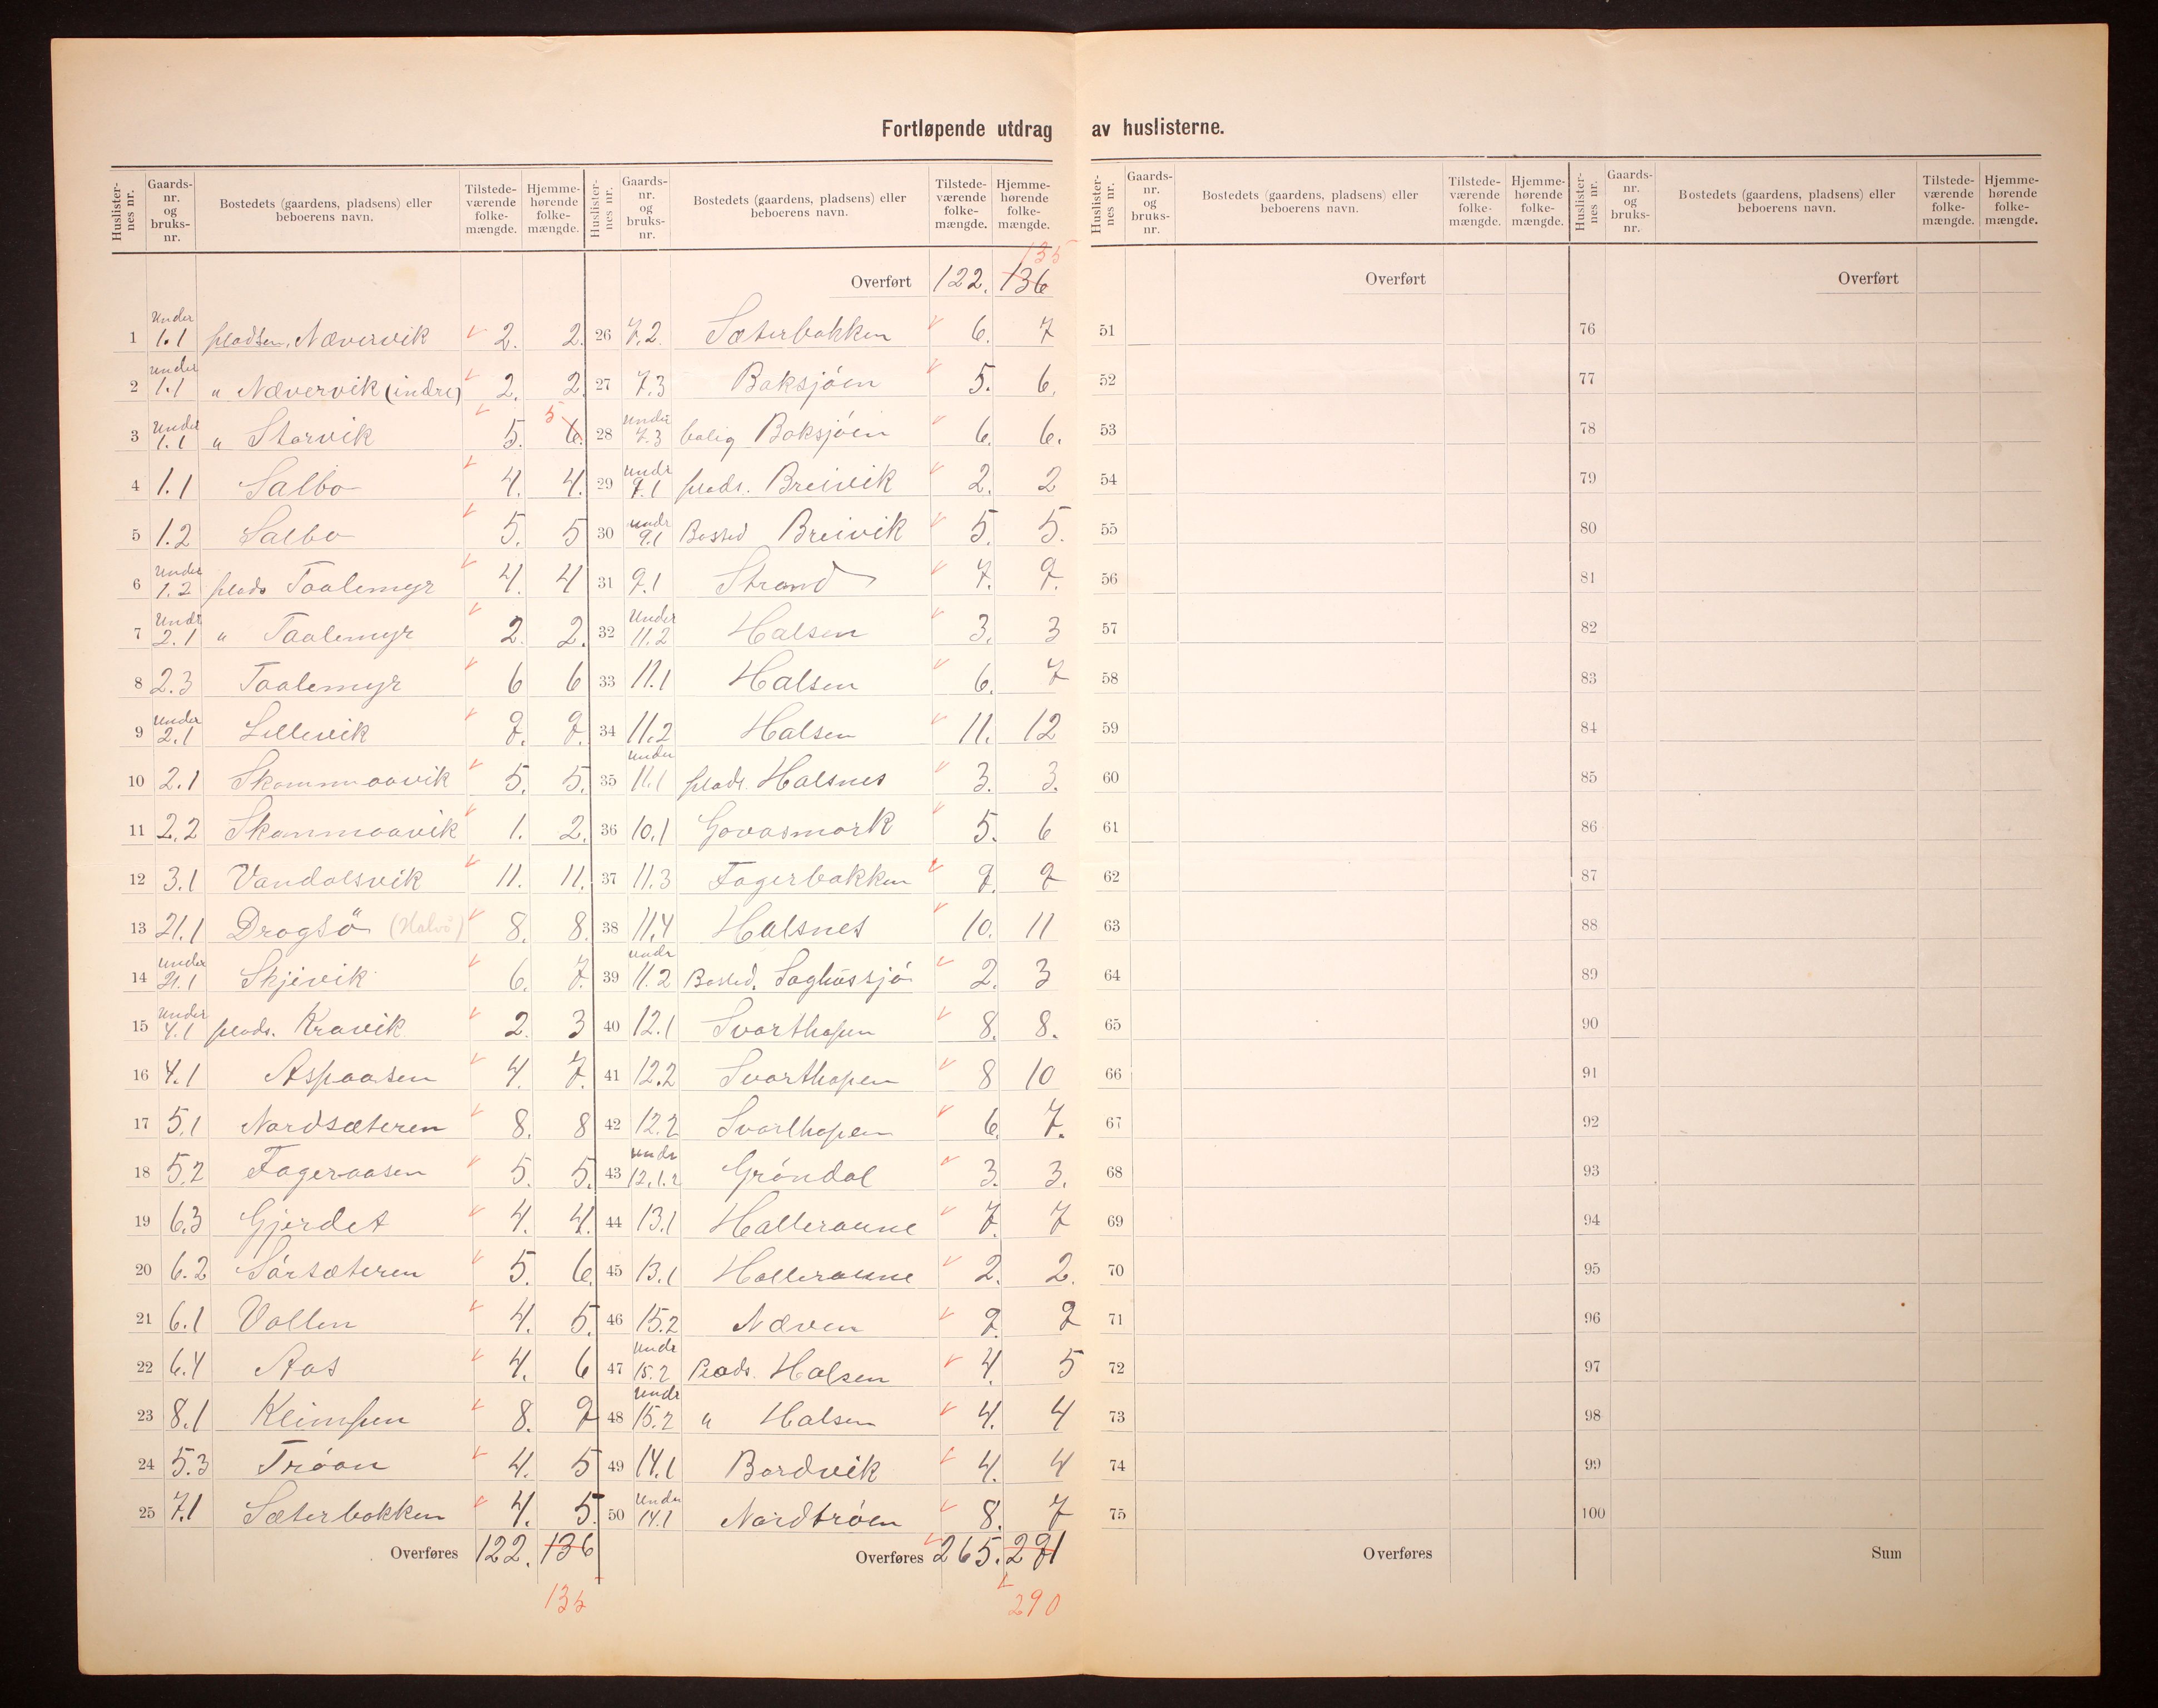 Fortløpende utdrag av huslisterne.
Huslisternes nr. Gaards-nr. og bruks-nr. Bostedets (gaardens, pladsens) eller beboerens navn. Tilstedeværende folkemængde. Hjemmehørende folkemængde.
1 Under 1.1 pladsen, Nævervik 2. 2.
2 under 1.1 " Nævervik (indre) 2. 2
3 Under 1.1 " Storvik 5. 6. 5
4 1.1 Salbo 4. 4.
5 1.2 Salbo 5. 5
6 Under 1.2 plads Taalemyr 4. 4
7 Undr 2.1 " Taalemyr 2. 2.
8 2.3 Taalemyr 6 6
9 Under 2.1 Lillevik 9. 9.
10 2.1 Skammoavik 5. 5.
11 2.2 Skammoavik 1. 2.
12 3.1 Vandalsvik 11. 11.
13 21.1 Drogsö (Halvö) 8. 8.
14 Under 21.1 Skjevik 6. 7.
15 Under 4.1 plads. Kravik 2. 3
16 4.1 Aspaasen 4. 7.
17 5.1 Nordsæteren 8. 8
18 5.2 Fageraasen 5. 5.
19 6.3 Gjerdet 4. 4.
20 6.2 Sörsæteren 5. 6.
21 6.1 Vollen 4. 5.
22 6.4 Aas 4. 6
23 8.1 Kleimpen 8. 9
24 5.3 Tröan 4. 5
25 7.1 Sæterbakken 4. 5.
Overføres 122. 136
135
Huslisternes nr. Gaards-nr. og bruks-nr. Bostedets (gaardens, pladsens) eller beboerens navn. Tilstedeværende folkemængde. Hjemmehørende folkemængde.
135
Overført 122. 136
26 7.2 Sæterbakken 6. 7
27 7.3 Baksjöen 5. 6.
28 Under 7.3 bolig Baksjöen 6. 6.
29 Undr 9.1 plads. Breivik 2. 2
30 undr 9.1 Bosted Breivik 5. 5.
31 9.1 Strand 7. 9.
32 Under 11.2 Halsen 3. 3
33 11.1 Halsen 6. 7
34 11.2 Halsen 11. 12
35 under 11.1 plads. Halsnes 3. 3.
36 10.1 Govasmark 5. 6
37 11.3 Fagerbakken 9. 9
38 11.4 Halsnes 10. 11
39 undr 11.2 Bosted. Saghussjö 2. 3
40 12.1 Svarthopen 8. 8.
41 12.2 Svarthopen 8 10
42 12.2 Svarthopen 6. 7.
43 undr 12.1.2 Gröndal 3. 3.
44 13.1 Halleraune 7. 7
45 13.1 Halleraune 2. 2.
46 15.2 Næven 9. 9
47 Undr 15.2 Plads. Halsen 4. 5
48 Undr 15.2 " Halsen 4. 4
49 14.1 Bordvik 4. 4
50 Under 14.1 Nordtröen 8. 7
Overføres 265. 291
290
Huslisternes nr. Gaards-nr. og bruks-nr. Bostedets (gaardens, pladsens) eller beboerens navn. Tilstedeværende folkemængde. Hjemmehørende folkemængde.
Overført
51
52
53
54
55
56
57
58
59
60
61
62
63
64
65
66
67
68
69
70
71
72
73
74
75
Overføres
Huslisternes nr. Gaards-nr. og bruks-nr. Bostedets (gaardens, pladsens) eller beboerens navn. Tilstedeværende folkemængde. Hjemmehørende folkemængde.
Overført
76
77
78
79
80
81
82
83
84
85
86
87
88
89
90
91
92
93
94
95
96
97
98
99
100
Sum